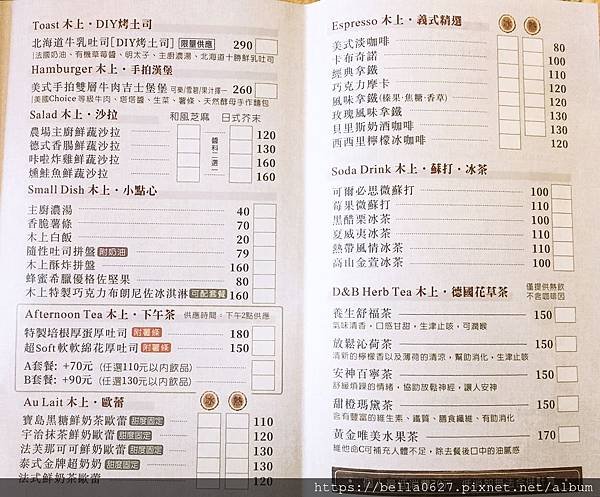 Toast 木上・DIY烤土司
北海道牛乳吐司[DIY烤土司] 限量供應 290
(法國奶油、有機草莓醬、明太子、主廚濃湯、北海道十勝鮮乳吐司
Hamburger 木上・手拍漢堡
美式手拍雙層牛肉吉士堡堡 可樂/雪碧/果汁擇一 260
(美國Choice等級牛肉、塔塔醬、生菜、薯條、天然酵母手作麵包
Salad 木上・沙拉 和風芝麻 日式芥末
農場主廚鮮蔬沙拉 120
德式香腸鮮蔬沙拉 130
咔啦炸雞鮮蔬沙拉 160
燻鮭魚鮮蔬沙拉 160
醬料二選一
Small Dish 木上・小點心
主廚濃湯 40
香脆薯條 70
木上白飯 20
隨性吐司拼盤 附奶油 79
木上酥炸拼盤 160
蜂蜜希臘優格佐堅果 80
木上特製巧克力布朗尼佐冰淇淋 可配套餐 160
Afternoon Tea 木上・下午茶 供應時間：下午2點供應
特製培根厚蛋厚吐司 附薯條 180
超Soft軟軟綿花厚吐司 附薯條 150
A套餐: +70元 (任選110元以內飲品)
B套餐: +90元 (任選130元以內飲品)
Au Lait 木上・歐蕾 冰 熱
寶島黑糖鮮奶茶歐蕾 甜度固定 110
宇治抹茶鮮奶歐蕾 甜度固定 120
法芙那可可鮮奶歐蕾 甜度固定 130
泰式金牌超奶奶 甜度固定 130
法式鮮奶茶歐蕾 120
Espresso 木上・義式精選 冰 熱
美式淡咖啡 80
卡布奇諾 100
經典拿鐵 110
巧克力摩卡 120
風味拿鐵(榛果・焦糖・香草) 120
玫瑰風味拿鐵 130
貝里斯奶酒咖啡 130
西西里檸檬冰咖啡 120
Soda Drink 木上・蘇打・冰茶
可爾必思微蘇打 100
莓果微蘇打 110
黑醋栗冰茶 100
夏威夷冰茶 100
熱帶風情冰茶 100
高山金萱冰茶 100
D&B Herb Tea 木上・德國花草茶 僅提供熱飲
不含咖啡因
養生舒福茶 150
氣味清香，口感甘甜，生津止咳，可潤喉
放鬆沁荷茶 150
清新的檸檬香以及薄荷的清涼，幫助消化，生津止咳
安神百寧茶 150
舒緩煩躁的情緒，協助放鬆神經，讓人安神
甜橙瑪黛茶 150
含有豐富的維生素、鐵質、膳食纖維，有助消化
黃金唯美水果茶 170
維他命C可補充人體不足，除去餐後口中的油膩感
https://bella0627.pixnet.net/album